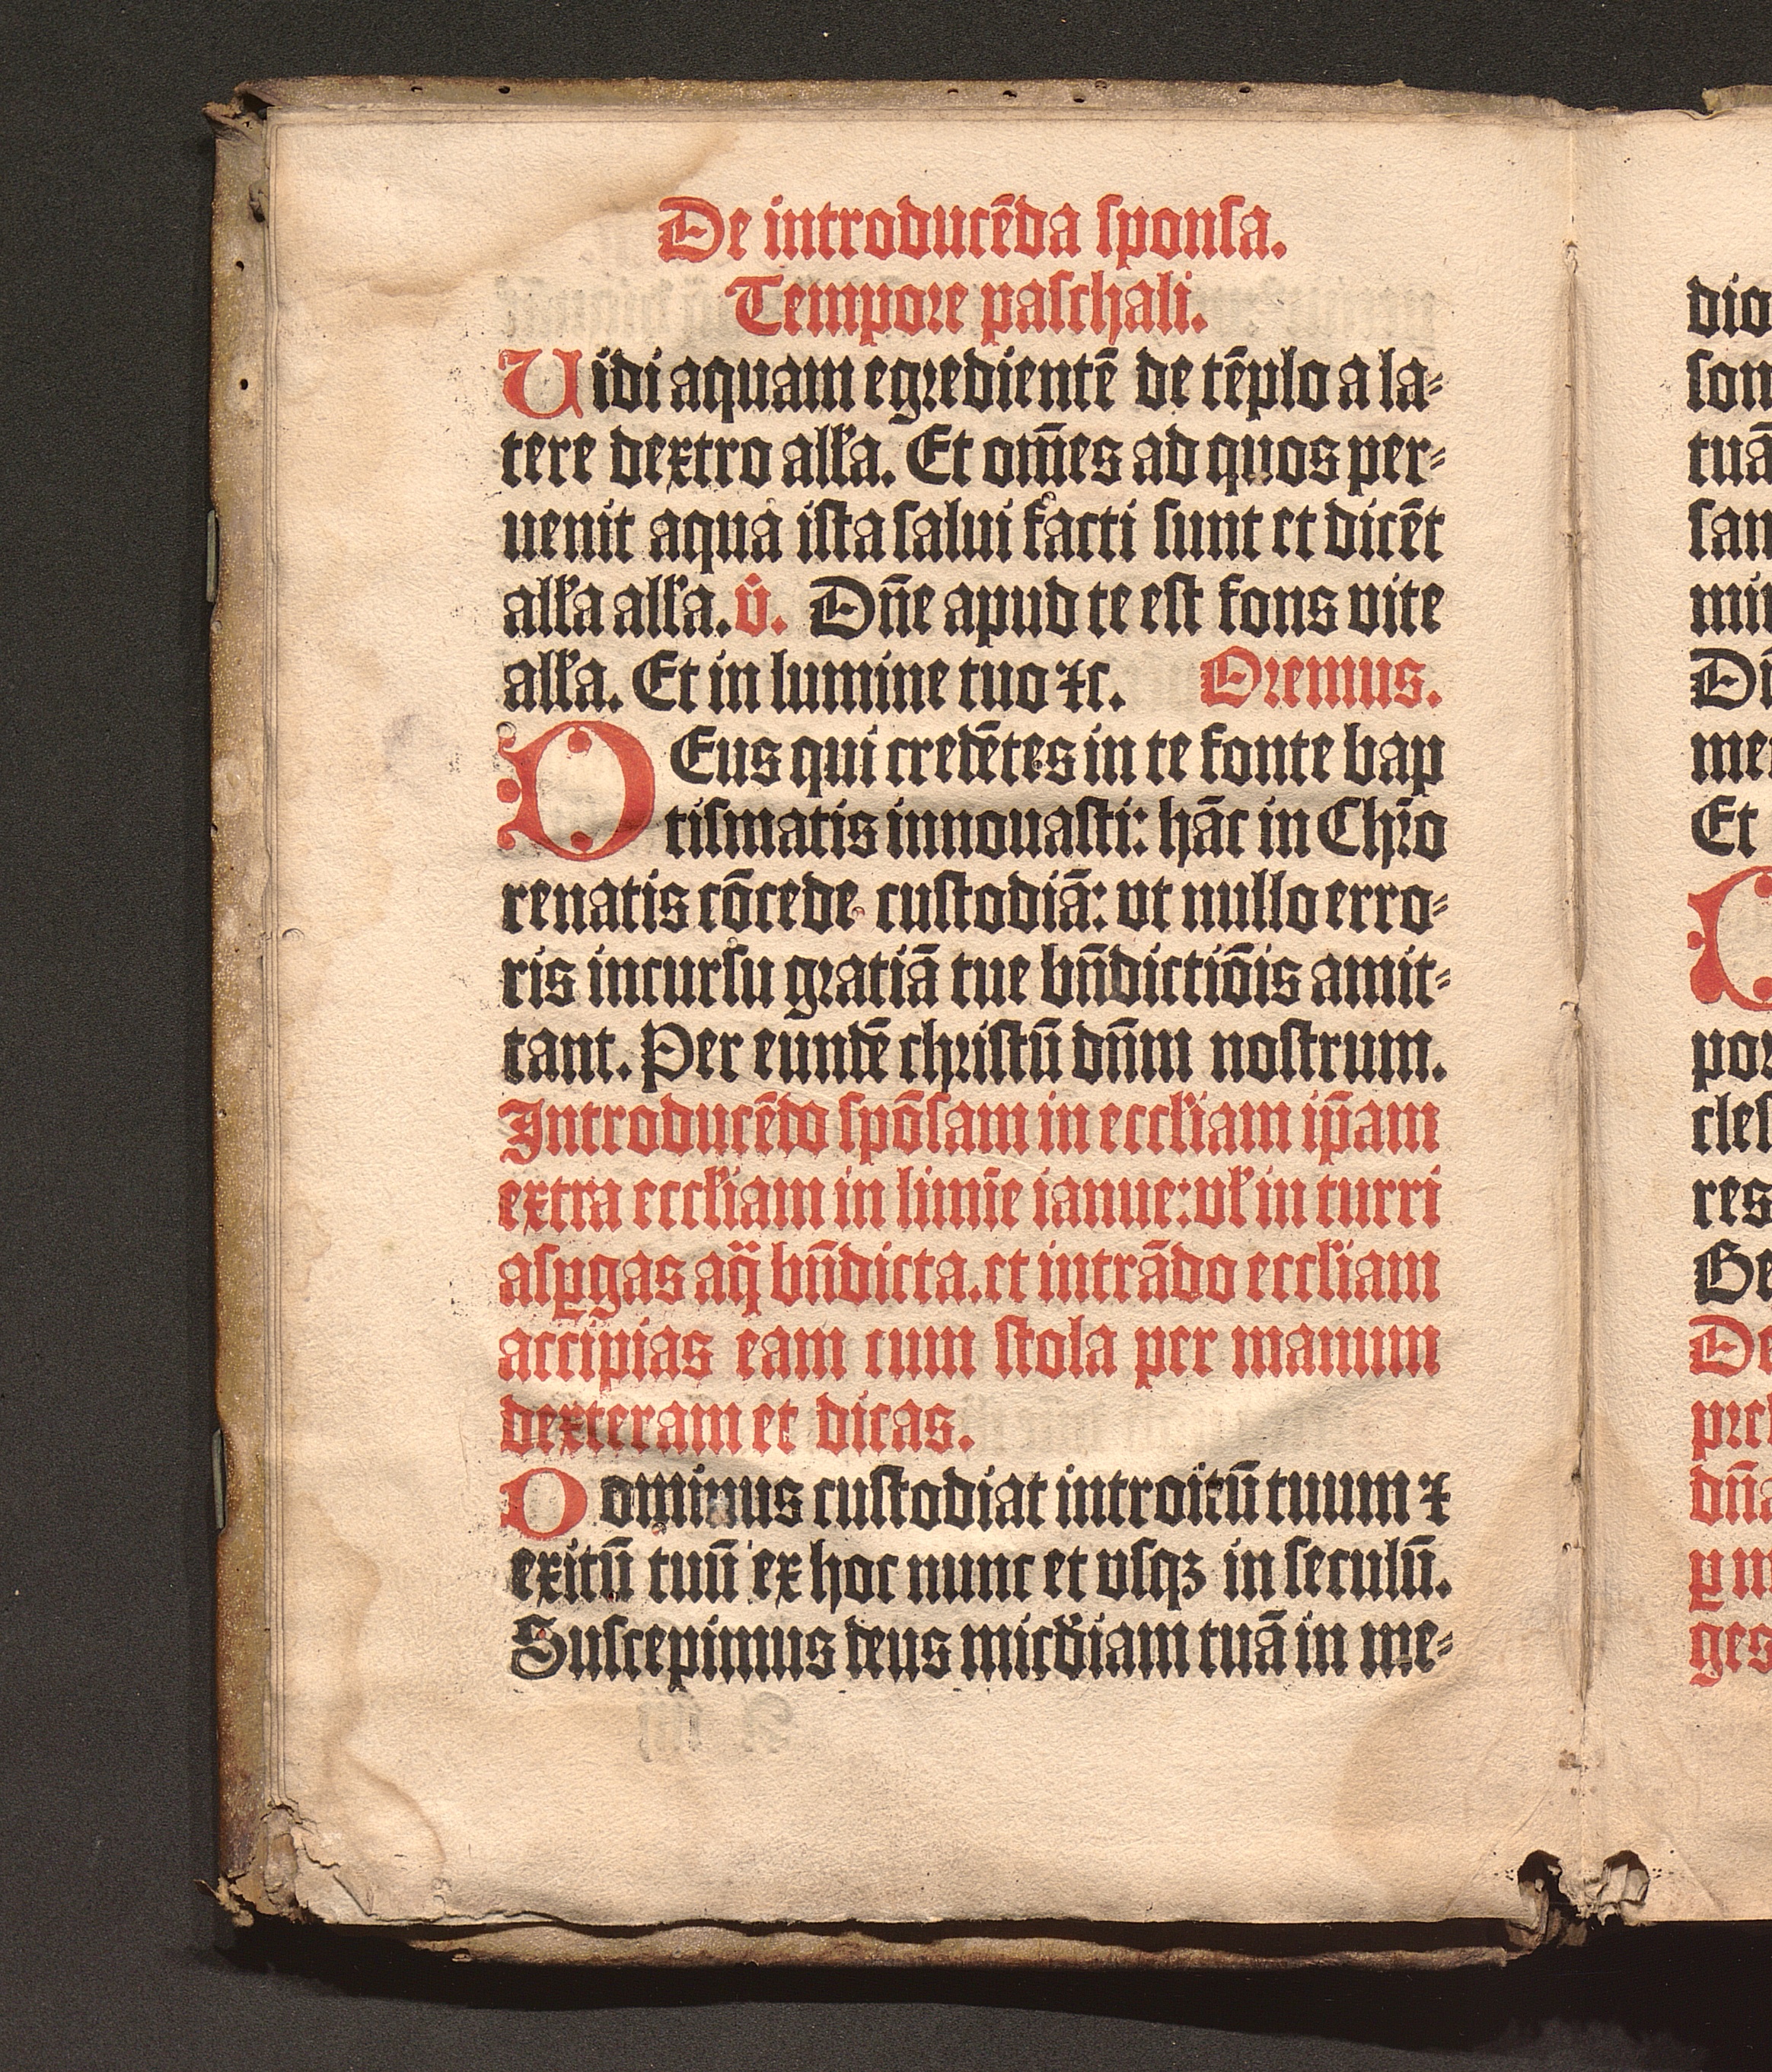 De introducēda sponsa.
Tempore paschali.
Uidi aquam egredientē de tēplo a la⸗
tere dextro alľa. Et om̄es ad quos per⸗
uenit aqua ista salui facti sunt et dicēt
alľa alľa. v̊. Dn̄e apud te est fons vite
alľa. Et in lumine tuo ⁊c. Oremus.
DEus qui credētes in te fonte bap
tismatis innouasti: hāc in Chr̄o
renatis cōcede custodiā: vt nullo erro⸗
ris incursu gratiā tue bn̄dictiōis amit⸗
tant. Per eundē christū dn̄m nostrum.
Introducēdo spōsam in eccľiam ip̄am
extra eccľiam in limīe ianue: vľ in turri
asꝑgas aq̈ bn̄dicta. et intrādo eccľiam
accipias eam cum stola per manum
dexteram et dicas.
Dominus custodiat introitū tuum ⁊
exitū tuū ex hoc nunc et vsqꝫ in seculū.
Suscepimus deus mīcdiam tuā in me⸗
dio
son
tuā
san
min
Di
mer
Et
C
por
cles
res
Ge
De
prel
dn̄a
ꝑ m
ges